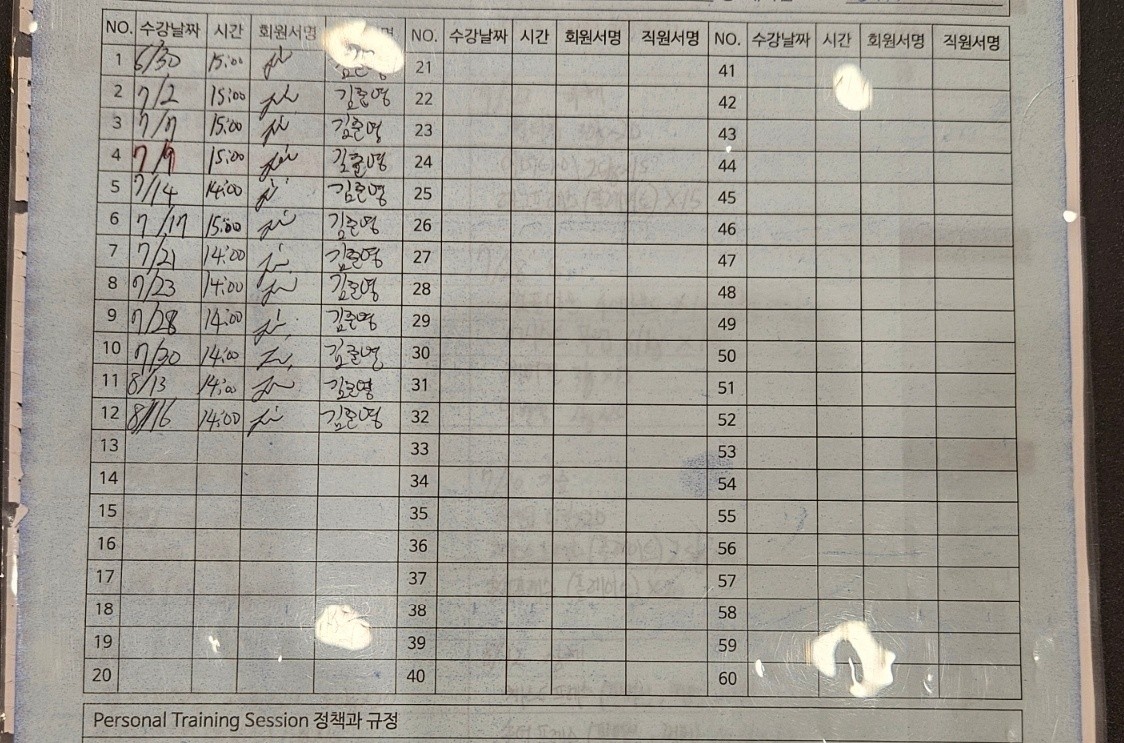 NO. 수강날짜 시간 회원서명 명 NO. 수강날짜 시간 회원서명 직원서명 NO. 수강날짜 시간 회원서명 직원서명
1 6/30 15:00 21 41
2 7/2 15:00 김준영 22 42
3 7/7 15:00 김준영 23 43
4 7/9 15:00 김준영 24 44
5 7/14 14:00 김준영 25 45
6 7/17 15:00 김준영 26 46
7 7/21 14:00 김준영 27 47
8 7/23 14:00 김준영 28 48
9 7/28 14:00 김준영 29 49
10 7/30 14:00 김준영 30 50
11 8/13 14:00 김준영 31 51
12 8/16 14:00 김준영 32 52
13 33 53
14 34 54
15 35 55
16 36 56
17 37 57
18 38 58
19 39 59
20 40 60
Personal Training Session 정책과 규정